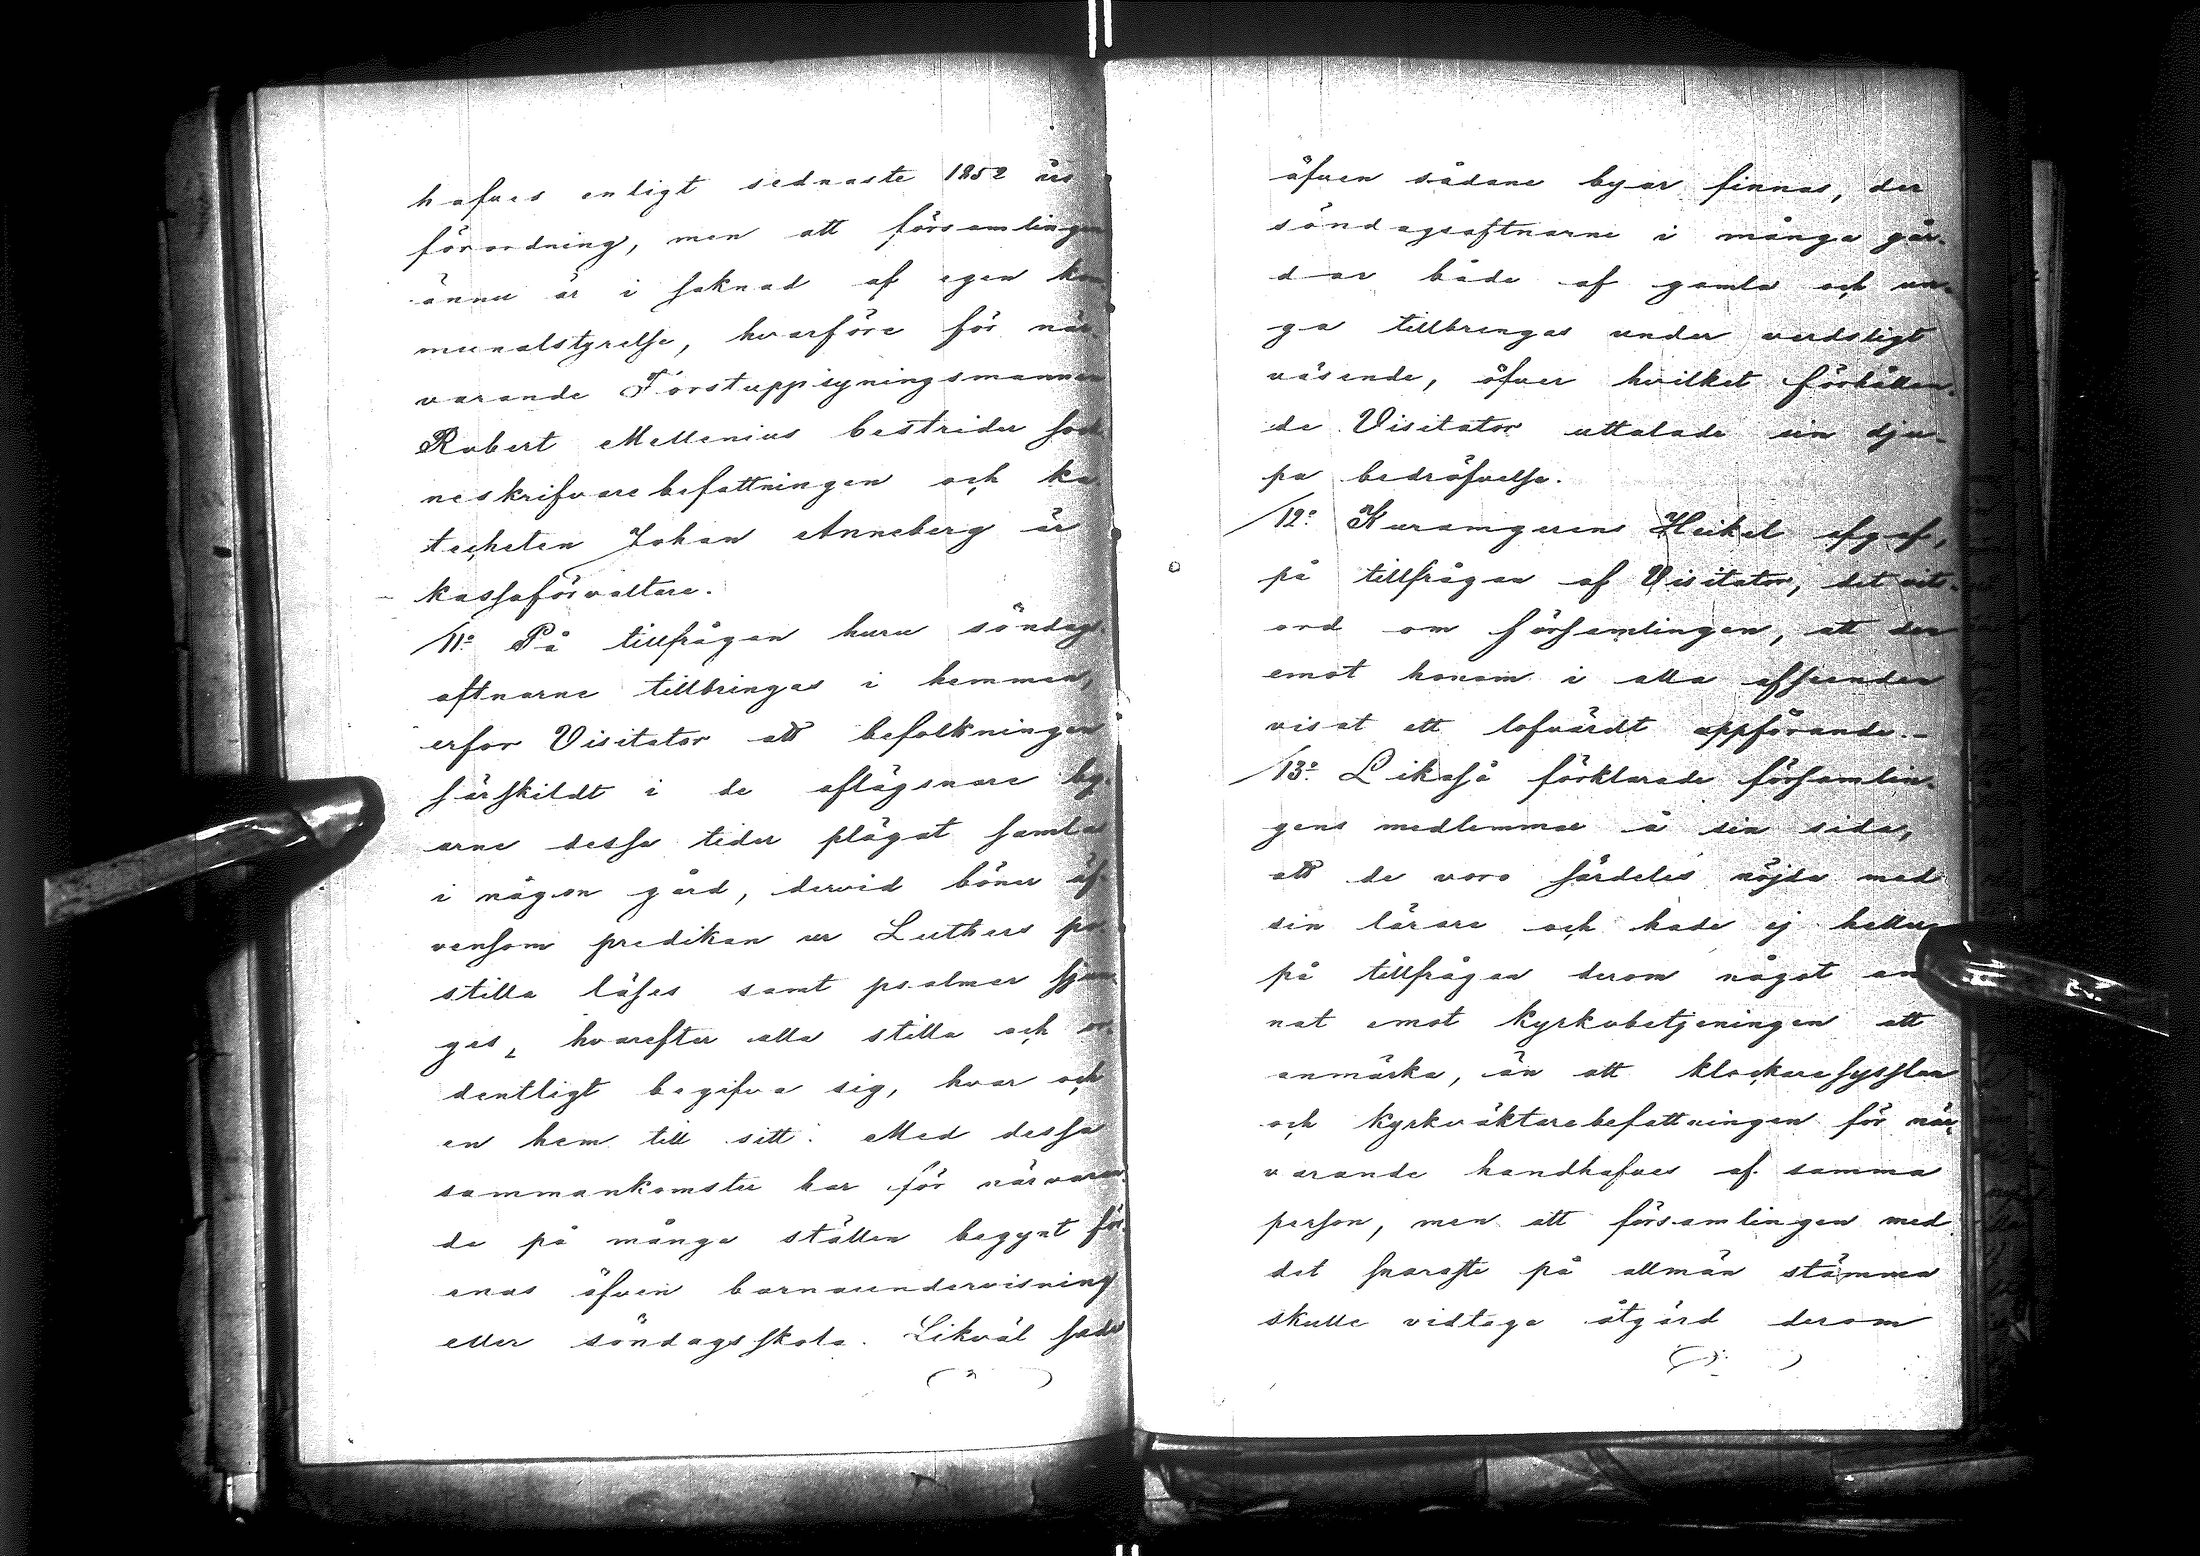 hafves enligt sednaste 1852 års
förordning, men att församlingen
ännu är i saknad af egen kom-
munalstyrelse, hvarföre för när-
varande Forstuppsyningsmannen
Robert Mellenius bestrider soc-
neskrifvarebefattningen och ka-
techeten Johan Anneberg är
kassaförvaltare.
11:o På tillfrågan huru söndags-
aftnarne tillbringas i hemmen,
erfor Visitator att befolkningen
särskildt i de aflägsnare by-
arne dessa tider plägat samlas
i någon gård, dervid böner äf-
vensom predikan ur Luthers po-
stilla läses samt psalmer sjun-
ges, hvarefter alla stilla och or-
dentligt begifva sig, hvar och
en hem till sitt. Med dessa
sammankomster har för närvaran-
de på många ställen begynt för-
enas äfven barnaundervisning
eller söndagsskola. Likväl sades
äfven sådane byar finnas, der
söndagsaftnarne i många går-
dar både af gamla och un-
ga tillbringas under verdsligt
väsende, öfver hvilket förhållan-
de Visitator uttalade sin dju-
pa bedröfvelse.
12:o Kuramgeren Heikel afgaf,
på tillfrågan af Visitator, det vits-
ord om församlingen, att den
emot honom i alla afseenden
visat ett lofvärdt uppförande.-
13:o Likaså förklarade församlin-
gens medlemmar å sin sida,
att de voro särdeles nöjda med
sin lärare och hade ej heller
på tillfrågan derom något an
nat emot kyrkobetjeningen att
anmärka, än att klockaresysslan
och kyrkväktarebefattningen för när-
varande handhafves af samma
person, men att församlingen med
det snaraste på allmän stämma
skulle vidtaga åtgärd derom